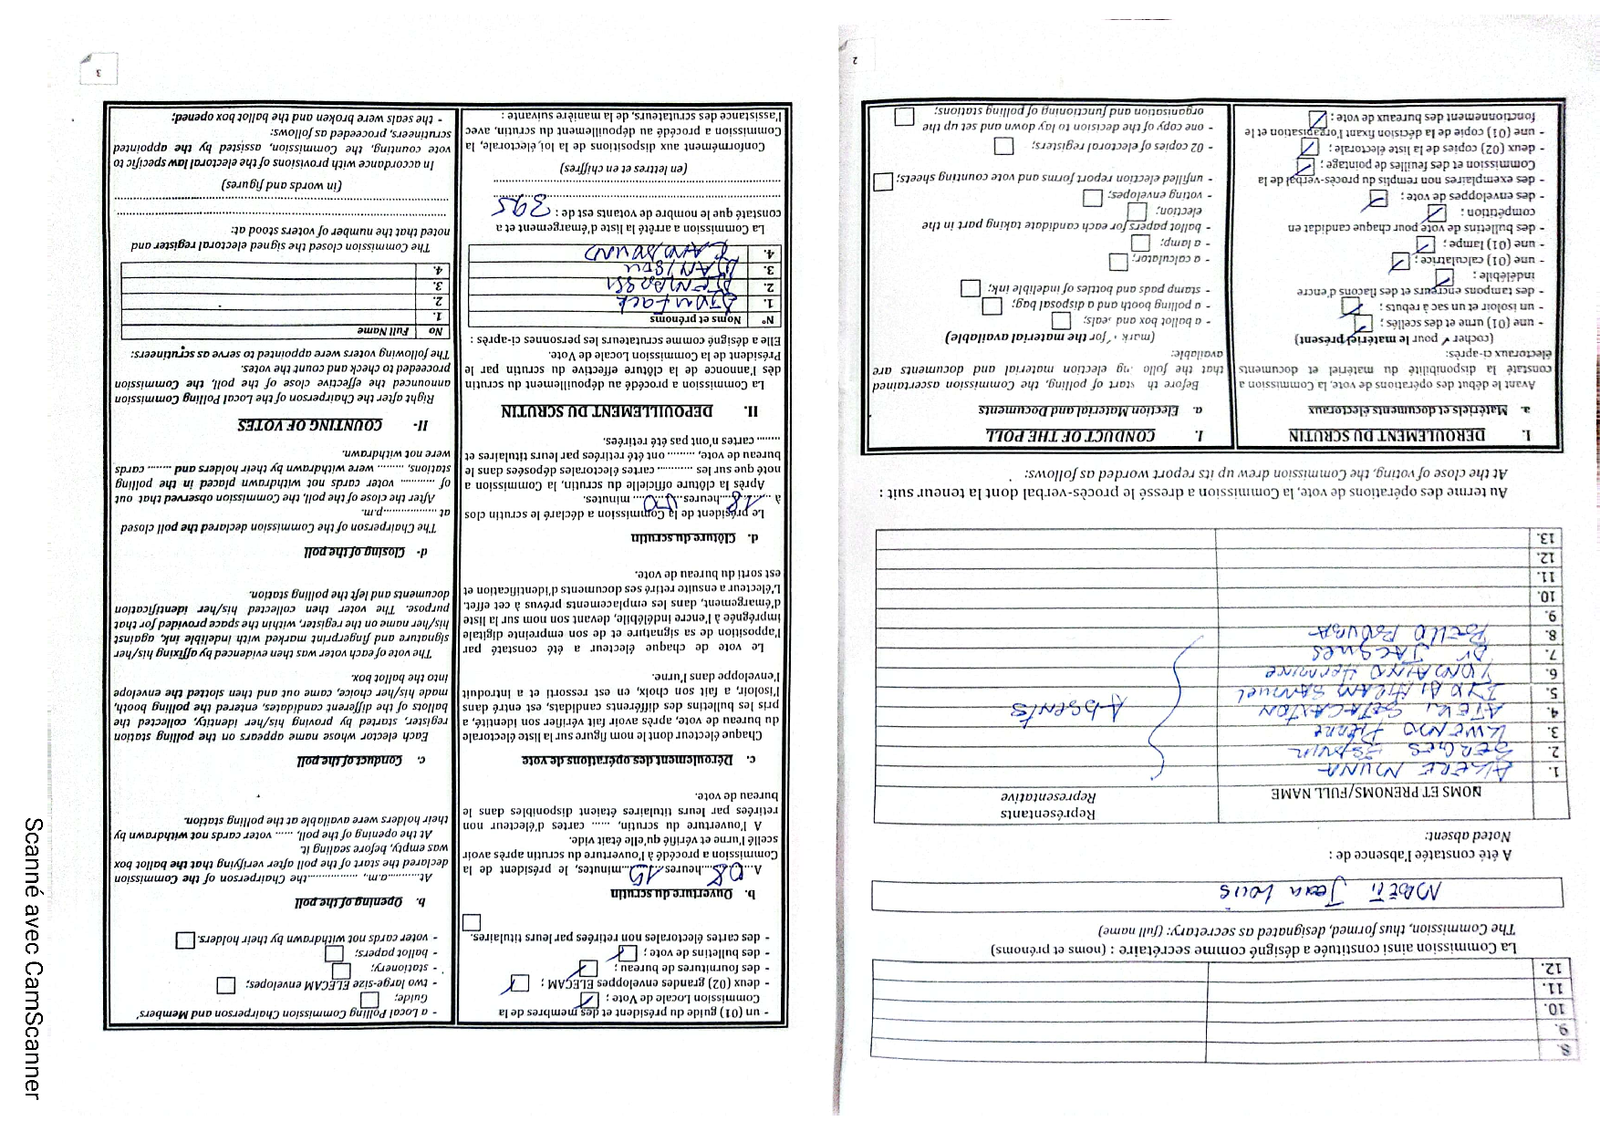 8.
9.
10.
11.
12.
La Commission ainsi constituée a désigné comme secrétaire : (noms et prénoms)
The Commission, thus formed, designated as secretary: (full name)
Jean Louis
A été constatée l'absence de :
Noted absent:
NOMS ET PRENOMS/FULL NAME
Représentants
Representative
1. AKERE MUNA
2. SERGES ESPOIR
3. KWEMO Pierre
4. ATEKI SETA CAXTON
5. IYODI HIRAM SAMUEL
6. TOMAINO Hermine
7. Dr JACQUES
8. BELLO BOUBA
9.
10.
11.
12.
13.
Absents
Au terme des opérations de vote, la Commission a dressé le procès-verbal dont la teneur suit :
At the close of voting, the Commission drew up its report worded as follows:
I. DEROULEMENT DU SCRUTIN
a. Matériels et documents électoraux
Avant le début des opérations de vote, la Commission a
constaté la disponibilité du matériel et documents
électoraux ci-après:
(cocher ✓ pour le matériel présent)
- une (01) urne et des scellés ;
- un isoloir et un sac à rebuts ;
- des tampons encreurs et des flacons d'encre
indélébile ;
- une (01) calculatrice ;
- une (01) lampe ;
- des bulletins de vote pour chaque candidat en
compétition ;
- des enveloppes de vote ;
- des exemplaires non remplis du procès-verbal de la
Commission et des feuilles de pointage ;
- deux (02) copies de la liste électorale ;
- une (01) copie de la décision fixant l'organisation et le
fonctionnement des bureaux de vote ;
I. CONDUCT OF THE POLL
a. Election Material and Documents
Before th start of polling, the Commission ascertained
that the follo ng election material and documents are
available:
(mark ✓ for the material available)
- a ballot box and seals;
- a polling booth and a disposal bag;
- stamp pads and bottles of indelible ink;
- a calculator;
- a lamp;
- ballot papers for each candidate taking part in the
election;
- voting envelopes;
- unfilled election report forms and vote counting sheets;
- 02 copies of electoral registers;
- one copy of the decision to lay down and set up the
organisation and functioning of polling stations;
2
- un (01) guide du président et des membres de la
Commission Locale de Vote ;
- deux (02) grandes enveloppes ELECAM ;
- des fournitures de bureau ;
- des bulletins de vote ;
- des cartes électorales non retirées par leurs titulaires.
b. Ouverture du scrutin
A 08 heures 15 minutes, le président de la
Commission a procédé à l'ouverture du scrutin après avoir
scellé l'urne et vérifié qu'elle était vide.
A l'ouverture du scrutin, ...... cartes d'électeur non
retirées par leurs titulaires étaient disponibles dans le
bureau de vote.
c. Déroulement des opérations de vote
Chaque électeur dont le nom figure sur la liste électorale
du bureau de vote, après avoir fait vérifier son identité, a
pris les bulletins des différents candidats, est entré dans
l'isoloir, a fait son choix, en est ressorti et a introduit
l'enveloppe dans l'urne.
Le vote de chaque électeur a été constaté par
l'apposition de sa signature et de son empreinte digitale
imprégnée à l'encre indélébile, devant son nom sur la liste
d'émargement, dans les emplacements prévus à cet effet.
L'électeur a ensuite retiré ses documents d'identification et
est sorti du bureau de vote.
d. Clôture du scrutin
Le président de la Commission a déclaré le scrutin clos
à 18 heures 00 minutes.
Après la clôture officielle du scrutin, la Commission a
noté que sur les .......... cartes électorales déposées dans le
bureau de vote, ......... ont été retirées par leurs titulaires et
....... cartes n'ont pas été retirées.
II. DEPOUILLEMENT DU SCRUTIN
La Commission a procédé au dépouillement du scrutin
dès l'annonce de la clôture effective du scrutin par le
Président de la Commission Locale de Vote.
Elle a désigné comme scrutateurs les personnes ci-après :
N° Noms et prénoms
1. DJOMFACK
2.
3.
4.
La Commission a arrêté la liste d'émargement et a
constaté que le nombre de votants est de : 395
(en lettres et en chiffres)
Conformément aux dispositions de la loi électorale, la
Commission a procédé au dépouillement du scrutin, avec
l'assistance des scrutateurs, de la manière suivante :
- a Local Polling Commission Chairperson and Members'
Guide;
- two large-size ELECAM envelopes;
- stationery;
- ballot papers;
- voter cards not withdrawn by their holders.
b. Opening of the poll
At.........a.m., ...............the Chairperson of the Commission
declared the start of the poll after verifying that the ballot box
was empty, before sealing it.
At the opening of the poll, ...... voter cards not withdrawn by
their holders were available at the polling station.
c. Conduct of the poll
Each elector whose name appears on the polling station
register, started by proving his/her identity, collected the
ballots of the different candidates, entered the polling booth,
made his/her choice, came out and then slotted the envelope
into the ballot box.
The vote of each voter was then evidenced by affixing his/her
signature and fingerprint marked with indelible ink, against
his/her name on the register, within the space provided for that
purpose. The voter then collected his/her identification
documents and left the polling station.
d- Closing of the poll
The Chairperson of the Commission declared the poll closed
at ....................p.m.
After the close of the poll, the Commission observed that out
of .......... voter cards not withdrawn placed in the polling
stations, ........ were withdrawn by their holders and ....... cards
were not withdrawn.
II- COUNTING OF VOTES
Right after the Chairperson of the Local Polling Commission
announced the effective close of the poll, the Commission
proceeded to check and count the votes.
The following voters were appointed to serve as scrutineers:
No Full Name
1.
2.
3.
4.
The Commission closed the signed electoral register and
noted that the number of voters stood at:
(in words and figures)
In accordance with provisions of the electoral law specific to
vote counting, the Commission, assisted by the appointed
scrutineers, proceeded as follows:
- the seals were broken and the ballot box opened;
3
Scanné avec CamScanner